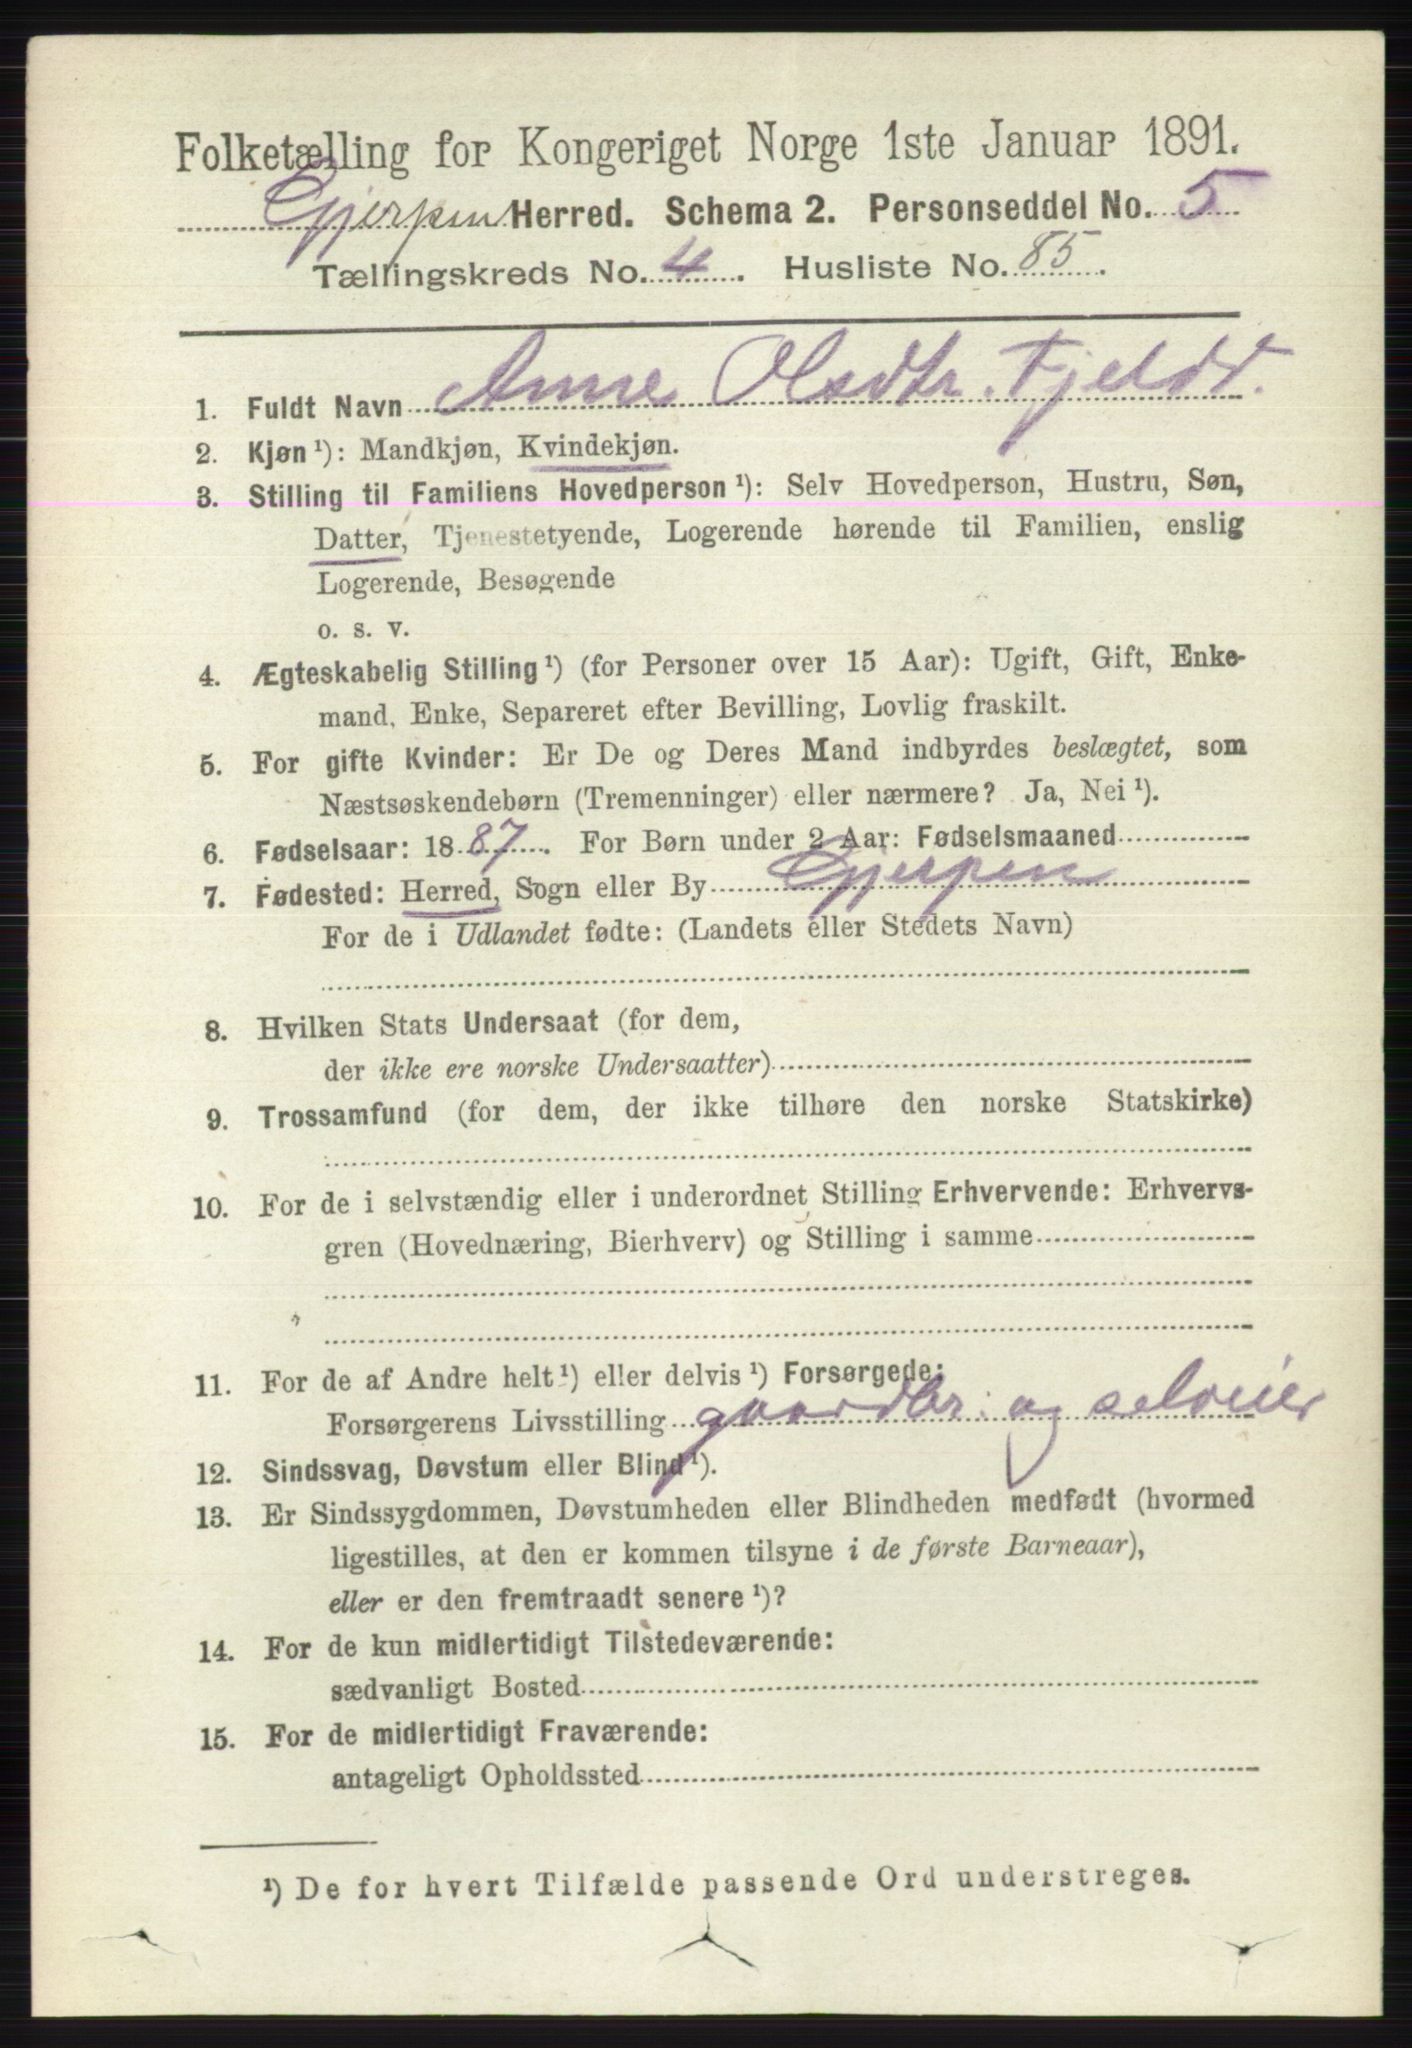 Folketælling for Kongeriget Norge 1ste Januar 1891.
Gjerpen Herred. Schema 2. Personseddel No. 5
Tællingskreds No. 4. Husliste No. 85.
1. Fuldt Navn Anne Olsdtr. Fjeldt.
2. Kjøn ¹): Mandkjøn, Kvindekjøn.
3. Stilling til Familiens Hovedperson ¹): Selv Hovedperson, Hustru, Søn,
Datter, Tjenestetyende, Logerende hørende til Familien, enslig
Logerende, Besøgende
o. s. v.
4. Ægteskabelig Stilling ¹) (for Personer over 15 Aar): Ugift, Gift, Enke-
mand, Enke, Separeret efter Bevilling, Lovlig fraskilt.
5. For gifte Kvinder: Er De og Deres Mand indbyrdes beslægtet, som
Næstsøskendebørn (Tremenninger) eller nærmere? Ja, Nei ¹).
6. Fødselsaar: 1887. For Børn under 2 Aar: Fødselsmaaned
7. Fødested: Herred, Sogn eller By Gjerpen
For de i Udlandet fødte: (Landets eller Stedets Navn)
8. Hvilken Stats Undersaat (for dem,
der ikke ere norske Undersaatter)
9. Trossamfund (for dem, der ikke tilhøre den norske Statskirke)
10. For de i selvstændig eller i underordnet Stilling Erhvervende: Erhvervs-
gren (Hovednæring, Bierhverv) og Stilling i samme
11. For de af Andre helt ¹) eller delvis ¹) Forsørgede:
Forsørgerens Livsstilling gaardbr. og selveier
12. Sindssvag, Døvstum eller Blind ¹).
13. Er Sindssygdommen, Døvstumheden eller Blindheden medfødt (hvormed
ligestilles, at den er kommen tilsyne i de første Barneaar),
eller er den fremtraadt senere ¹)?
14. For de kun midlertidigt Tilstedeværende:
sædvanligt Bosted
15. For de midlertidigt Fraværende:
antageligt Opholdssted
¹) De for hvert Tilfælde passende Ord understreges.